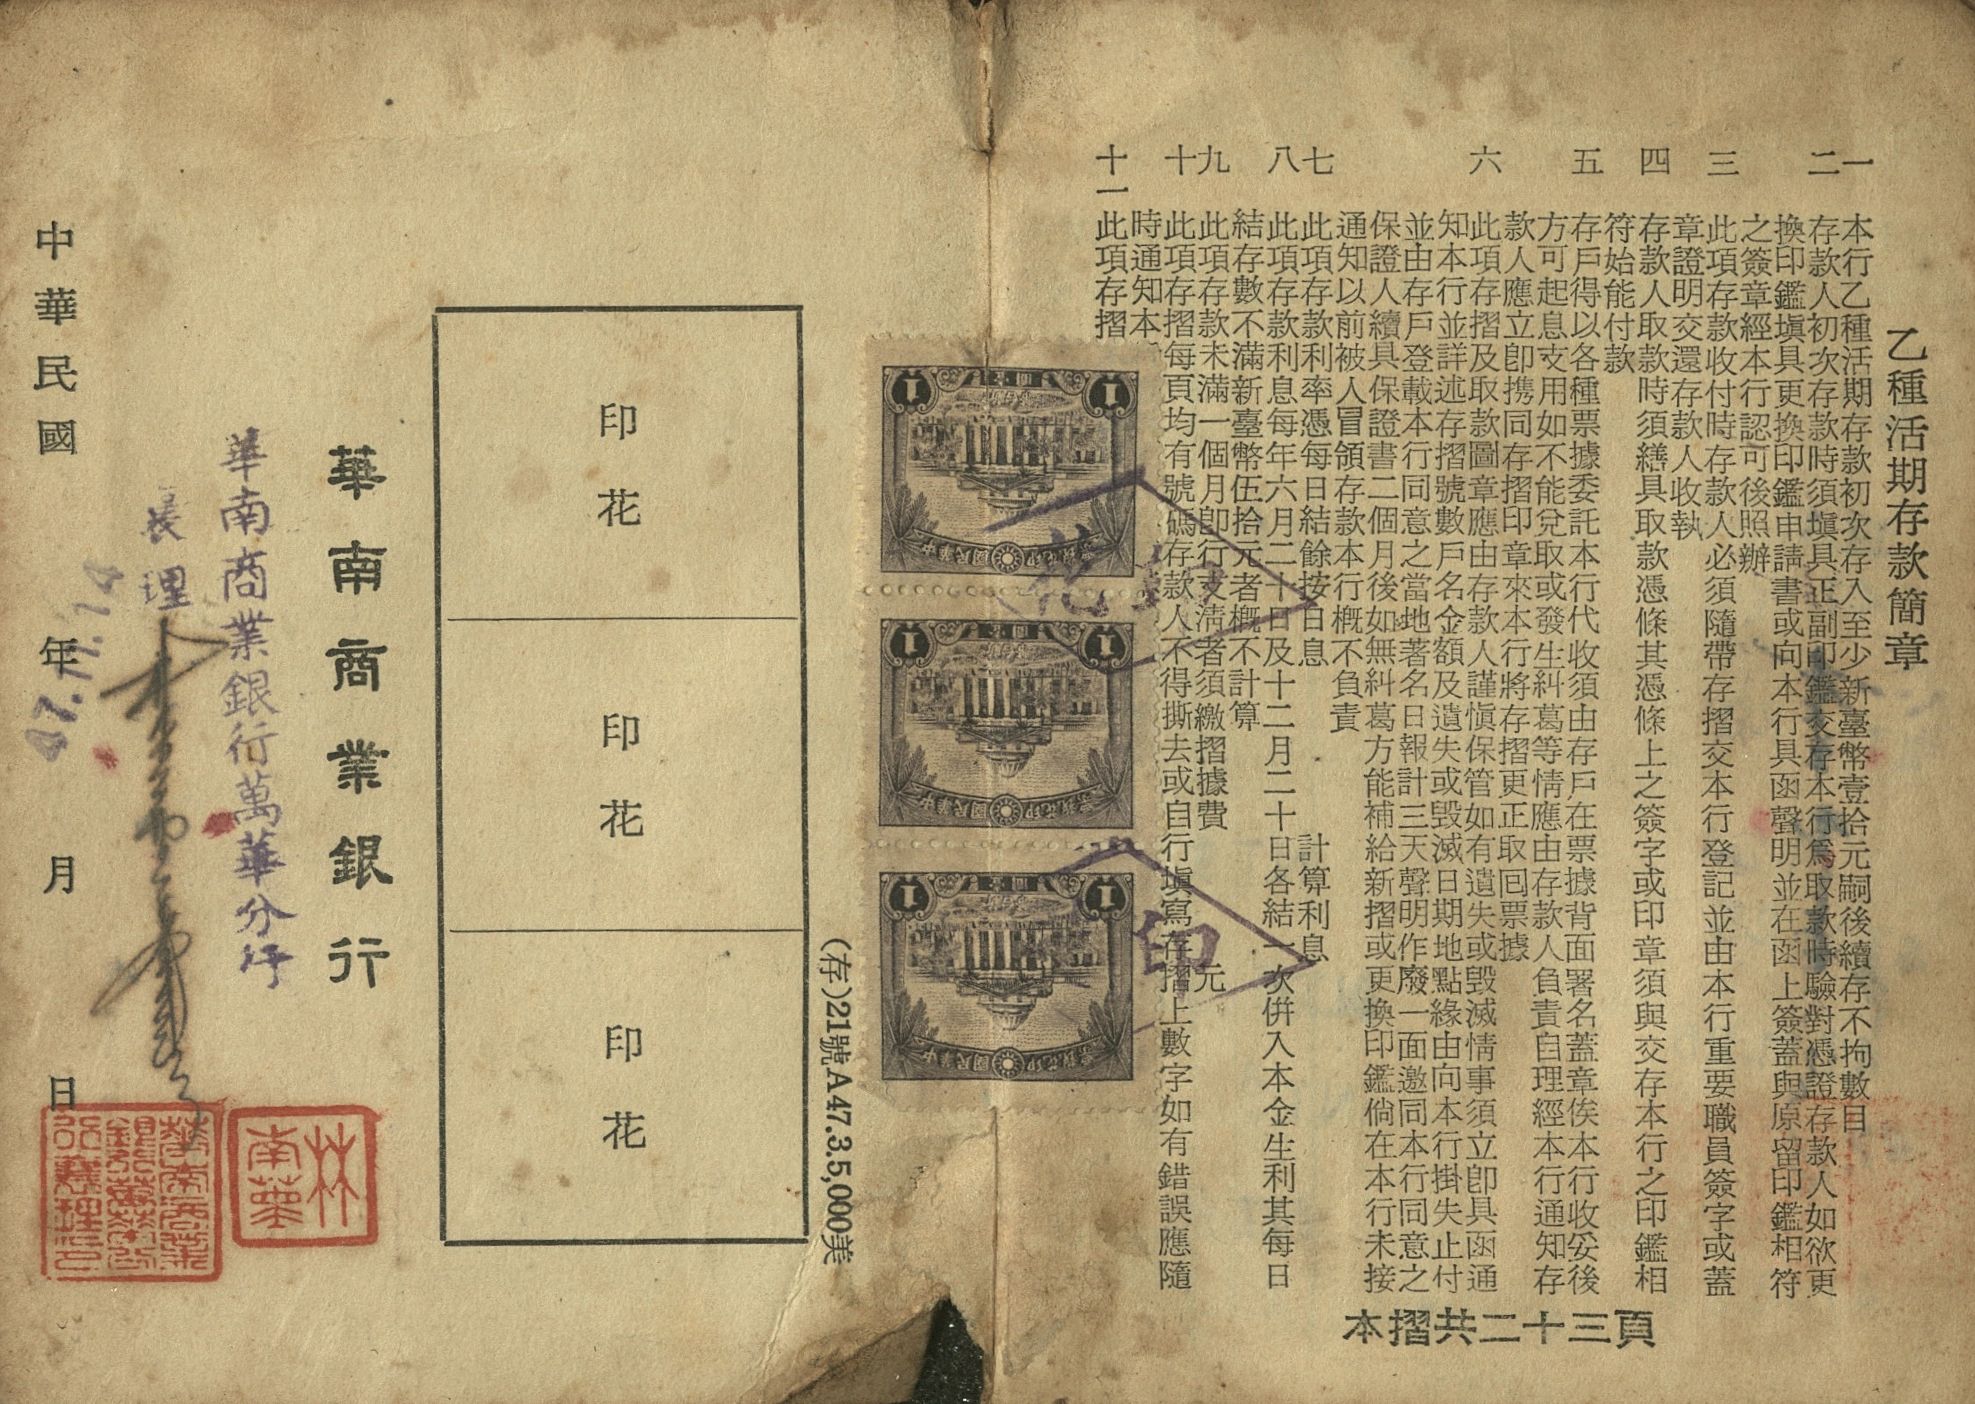 乙種活期存款簡章
一　本行乙種活期存款初次存入至少新臺幣壹拾元嗣後續存不拘數目
二　存款人初次存款時須塡具正副印鑑交存本行爲取款時驗對憑證存款人如欲更
換印鑑塡具更換印鑑申請書或向本行具函聲明並在函上簽蓋與原留印鑑相符
之簽章經本行認可後照辦
三　此項存款收付時存款人必須隨帶存摺交本行登記並由本行重要職員簽字或蓋
章證明交還存款人收執
四　存款人取款時須繕具取款憑條其憑條上之簽字或印章須與交存本行之印鑑相
符始能付款
五　存戶得以各種票據委託本行代收須由存戶在票據背面署名蓋章俟本行收妥後
方可起息支用如不能兌取或發生糾葛等情應由存款人負責自理經本行通知存
款人應立卽携同存摺印章來本行將存摺更正取囘票據
六　此項存摺及取款圖章應由存款人謹愼保管如有遺失或毀滅情事須立卽具函通
知本行並詳述存摺號數戶名金額及遺失或毀滅日期地點緣由向本行掛失止付
並由存戶登載本行同意之當地著名日報計三天聲明作廢一面邀同本行同意之
保證人續具保證書二個月後如無糾葛方能補給新摺或更換印鑑倘在本行未接
通知以前被人冒領存款本行槪不負責
七　此項存款利率憑每日結餘按日息　　計算利息
八　此項存款利息每年六月二十日及十二月二十日各結一次倂入本金生利其每日
結存數不滿新臺幣伍拾元者槪不計算
九　此項存款未滿一個月卽行支淸者須繳摺據費　　元
十　此項存摺每頁均有號碼存款人不得撕去或自行塡寫存摺上數字如有錯誤應隨
時通知本
十一　此項存摺
本摺共二十三頁
1
1
中華民國印花稅票
1
1
中華民國印花稅票
1
1
中華民國印花稅票
印
花
(存)21號A47.3.5,000美
印花
印花
印花
華南商業銀行
華南商業銀行萬華分行
理
47.11.14
中華民國　年　月　日
林